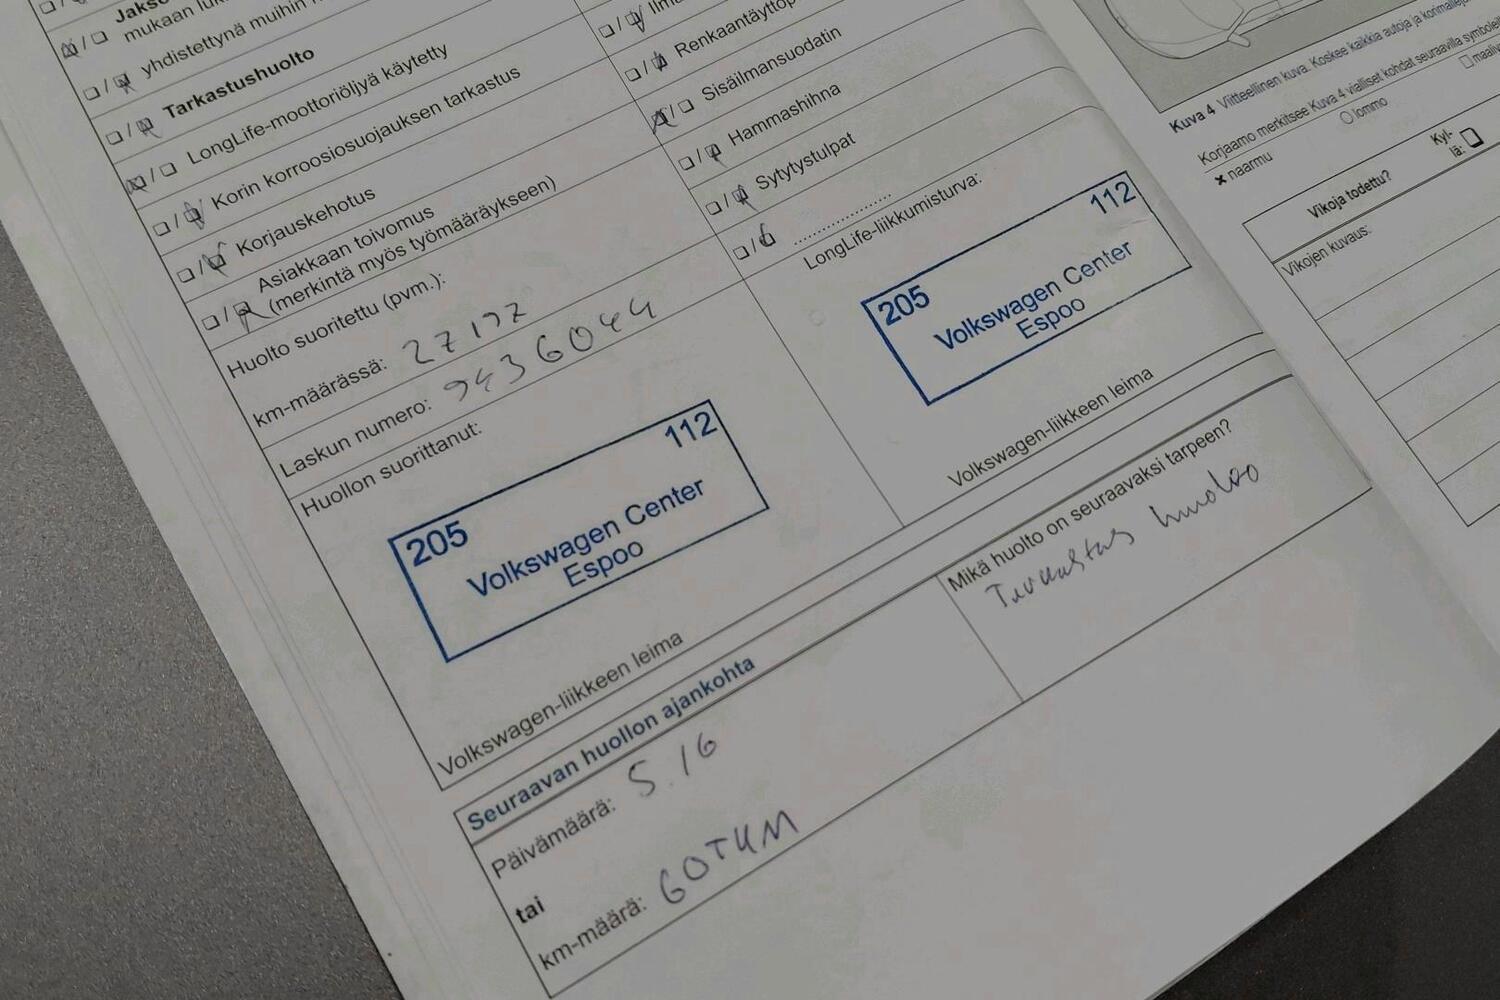 mukaan
yhdistettynä muihin
Tarkastushuolto
LongLife-moottoriöljyä käytetty
Korin korroosiosuojauksen tarkastus
Korjauskehotus
Asiakkaan toivomus
(merkintä myös työmääräykseen)
Huolto suoritettu (pvm.):
km-määrässä: 27192
Laskun numero: 9436044
Huollon suorittanut:
205 112
Volkswagen Center
Espoo
Volkswagen-liikkeen leima
Renkaantäyttöp
Sisäilmansuodatin
Hammashihna
Sytytystulpat
....................
LongLife-liikkumisturva:
205 112
Volkswagen Center
Espoo
Volkswagen-liikkeen leima
Seuraavan huollon ajankohta
Päivämäärä: 5.16
tai
km-määrä: 60TKM
Mikä huolto on seuraavaksi tarpeen?
Kuva 4 Viitteellinen kuva. Koskee kaikkia autoja ja korimalleja
Korjaamo merkitsee Kuva 4 vialliset kohdat seuraavilla symboleilla
naarmu lommo
Vikoja todettu? Kyl-
lä:
Vikojen kuvaus: